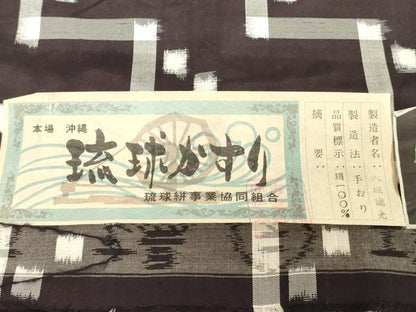 本場 沖縄
琉球かすり
琉球絣事業協同組合
製造者名:
製造法:手おり
品質標示:絹一〇〇%
摘要: